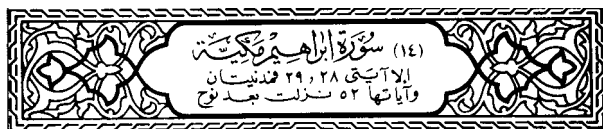 (١٤) سُورَة إبْرَاهِيْم مَكيَّة
إلا آيَتى ٢٨ و ٢٩ فمدنيتان
وآياتها ٥٢ نزلت بعد نوح